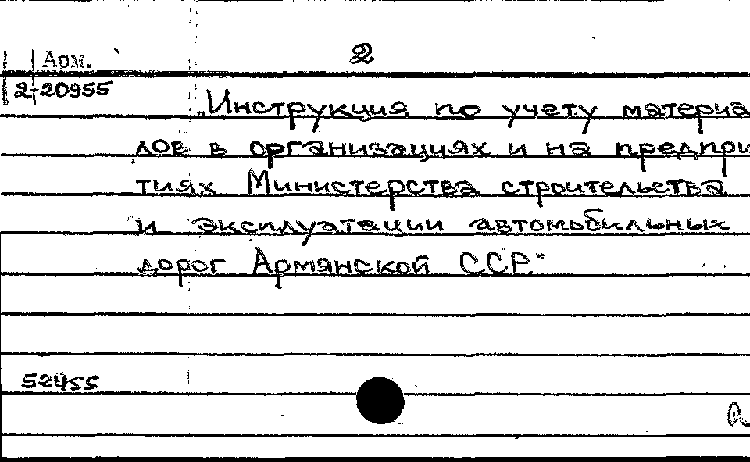 2
Арм.
2-20955
„Инструкция по учету материа
лов в организациях и на предпри
тиях Министерства строительства
и эксплуатации автомобильных
дорог Армянской ССР"
52455